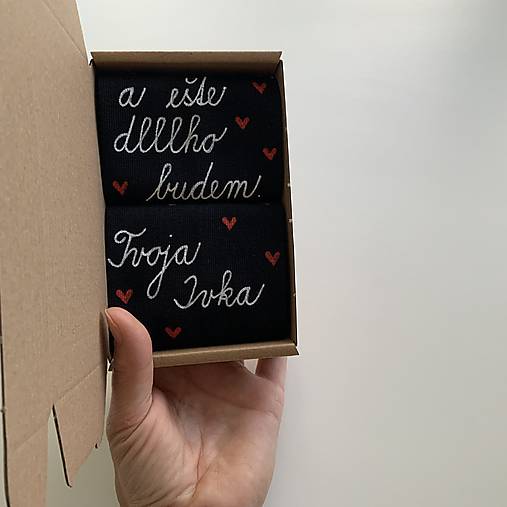 a ešte
dlllho
budem.
Tvoja
Ivka